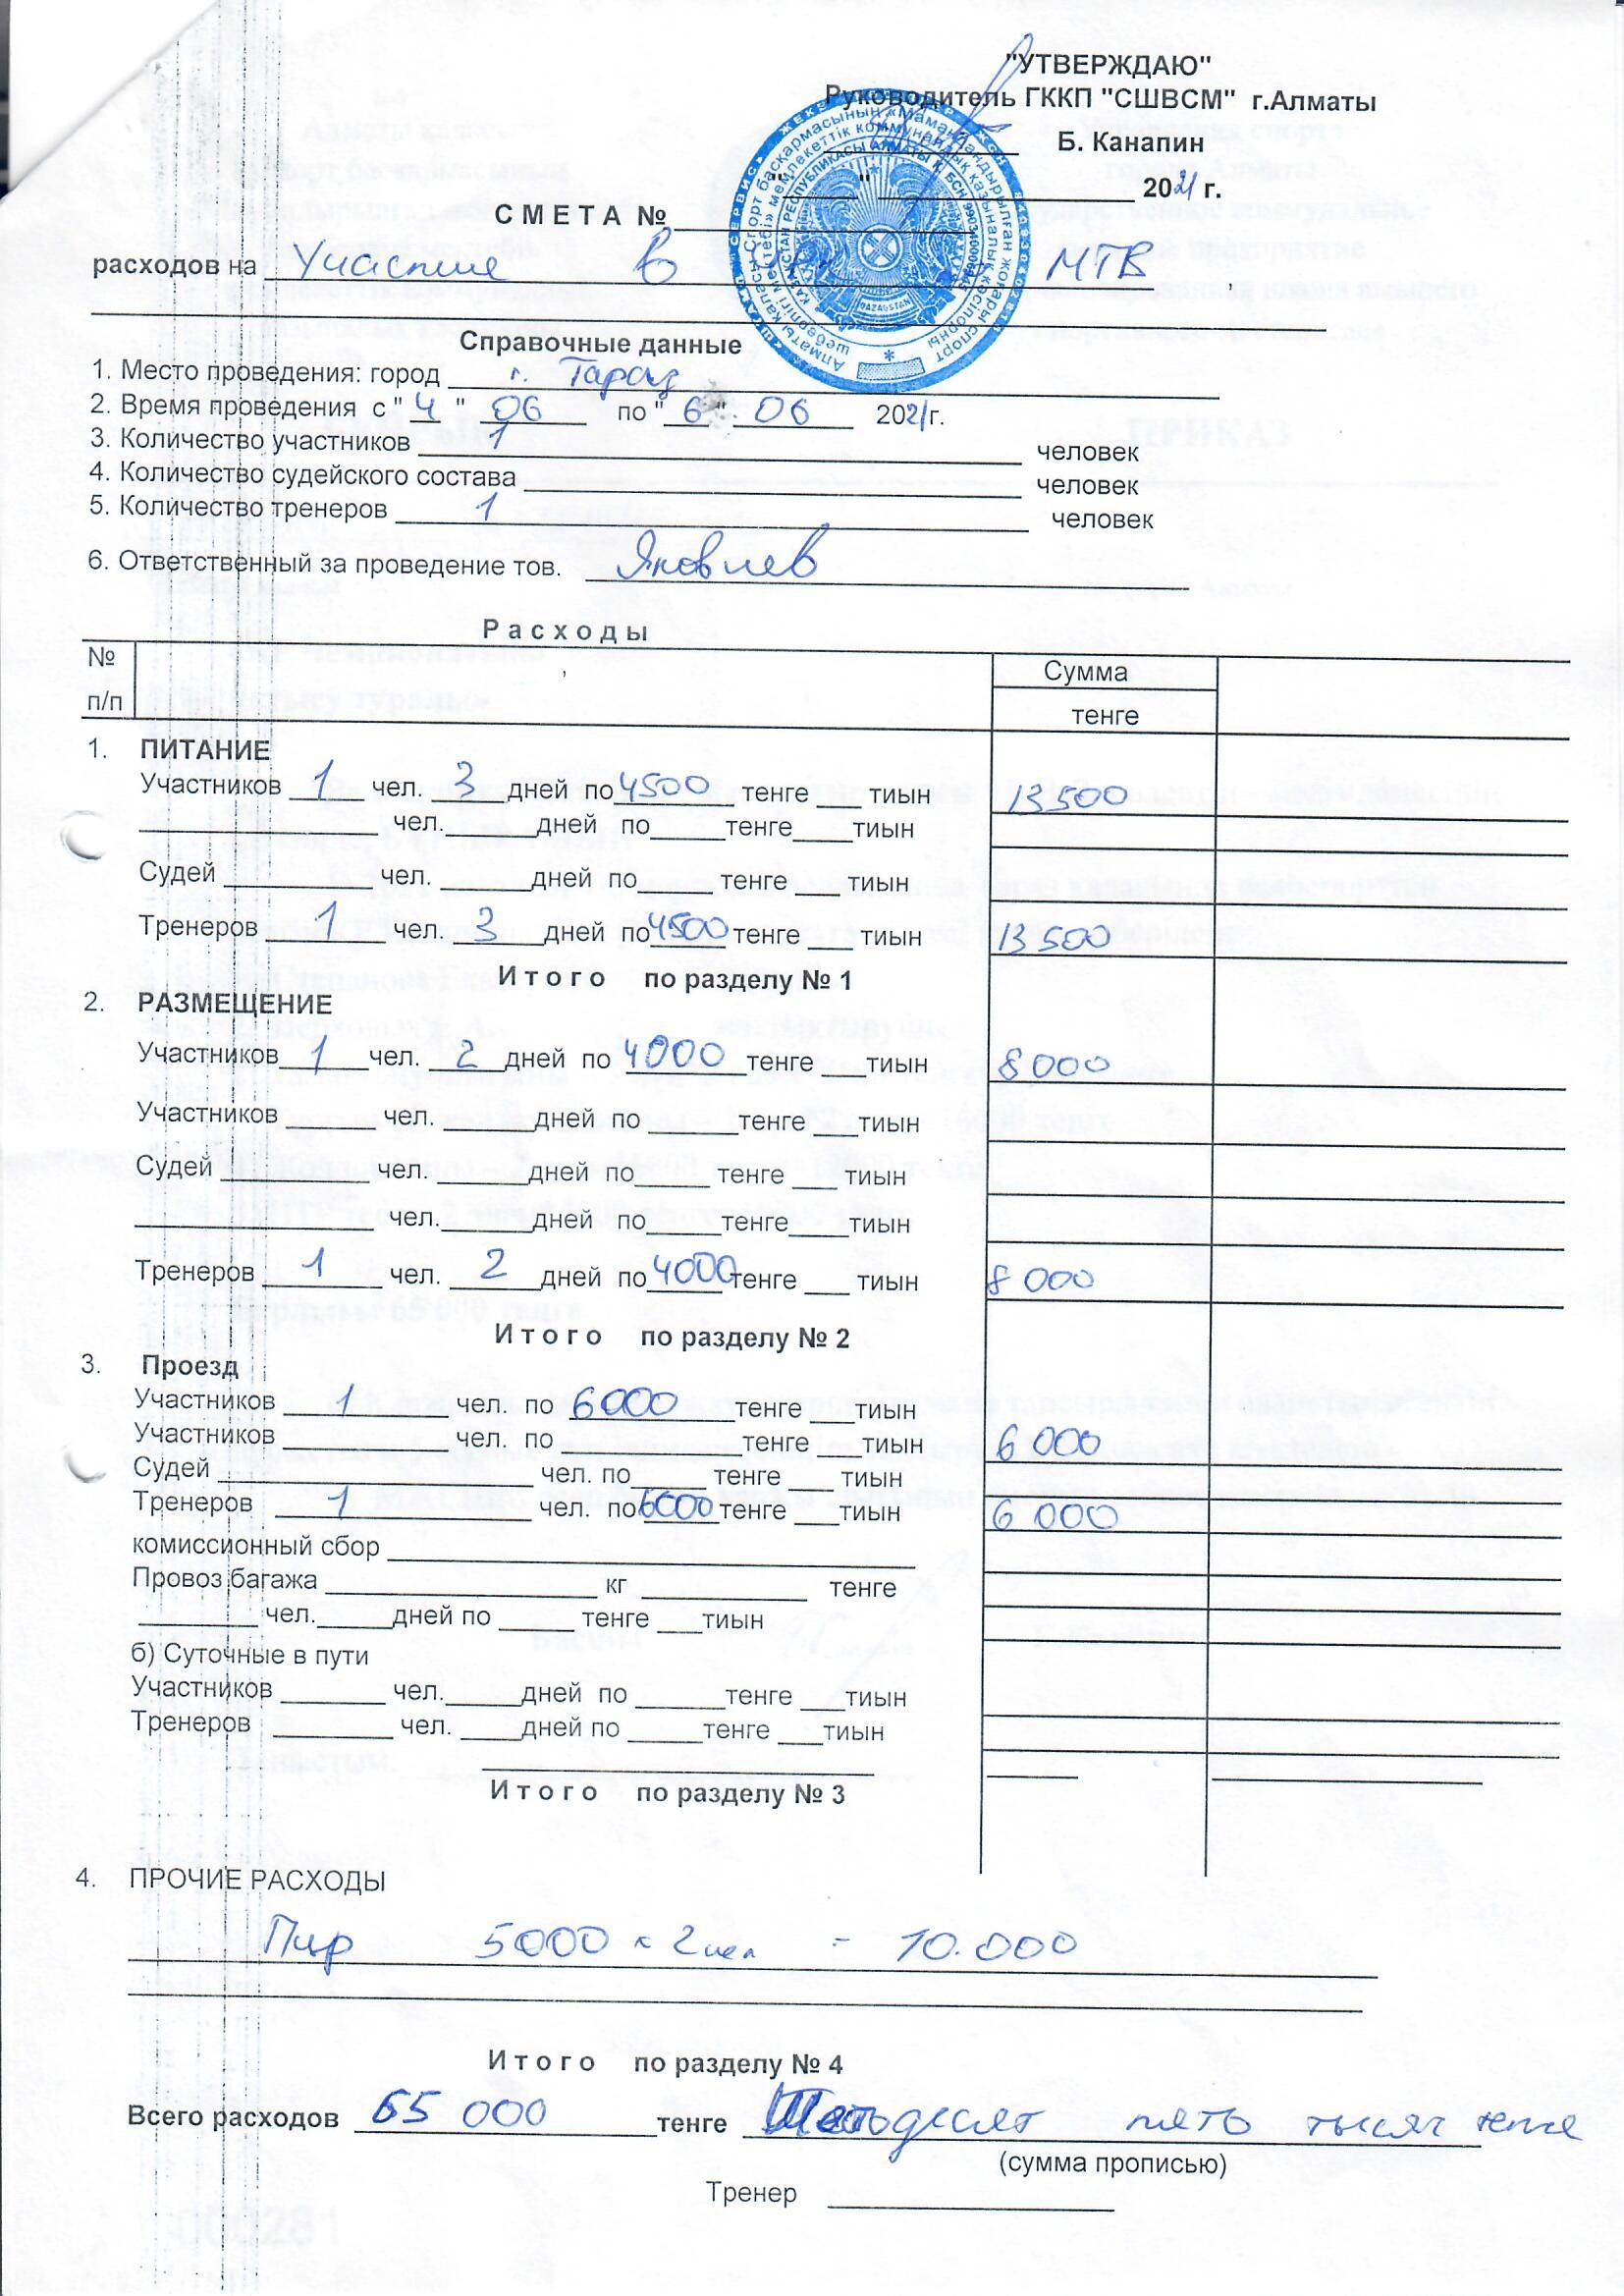 "УТВЕРЖДАЮ"
Руководитель ГККП "СШВСМ" г.Алматы
Б. Канапин
"____" 2021 г.
С М Е Т А №
расходов на Участие в МТВ
Справочные данные
1. Место проведения: город г. Тараз
2. Время проведения с "4" 06 по "6" 06 2021г.
3. Количество участников 1 человек
4. Количество судейского состава человек
5. Количество тренеров 1 человек
6. Ответственный за проведение тов. Яковлев
Р а с х о д ы
№ п/п Сумма
тенге
1. ПИТАНИЕ
Участников 1 чел. 3 дней по 4500 тенге ___ тиын 13500
чел. дней по тенге тиын
Судей чел. дней по тенге тиын
Тренеров 1 чел. 3 дней по 4500 тенге тиын 13 500
И т о г о по разделу № 1
2. РАЗМЕЩЕНИЕ
Участников 1 чел. 2 дней по 4000 тенге тиын 8000
Участников чел. дней по тенге тиын
Судей чел. дней по тенге тиын
чел. дней по тенге тиын
Тренеров 1 чел. 2 дней по 4000 тенге тиын 8 000
И т о г о по разделу № 2
3. Проезд
Участников 1 чел. по 6000 тенге тиын
Участников чел. по тенге тиын 6 000
Судей чел. по тенге тиын
Тренеров 1 чел. по 6000 тенге тиын 6 000
комиссионный сбор
Провоз багажа кг тенге
чел. дней по тенге тиын
б) Суточные в пути
Участников чел. дней по тенге тиын
Тренеров чел. дней по тенге тиын
И т о г о по разделу № 3
4. ПРОЧИЕ РАСХОДЫ
Пцр 5000 х 2 чел - 10.000
И т о г о по разделу № 4
Всего расходов 65 000 тенге пять тысяч тенге
(сумма прописью)
Тренер